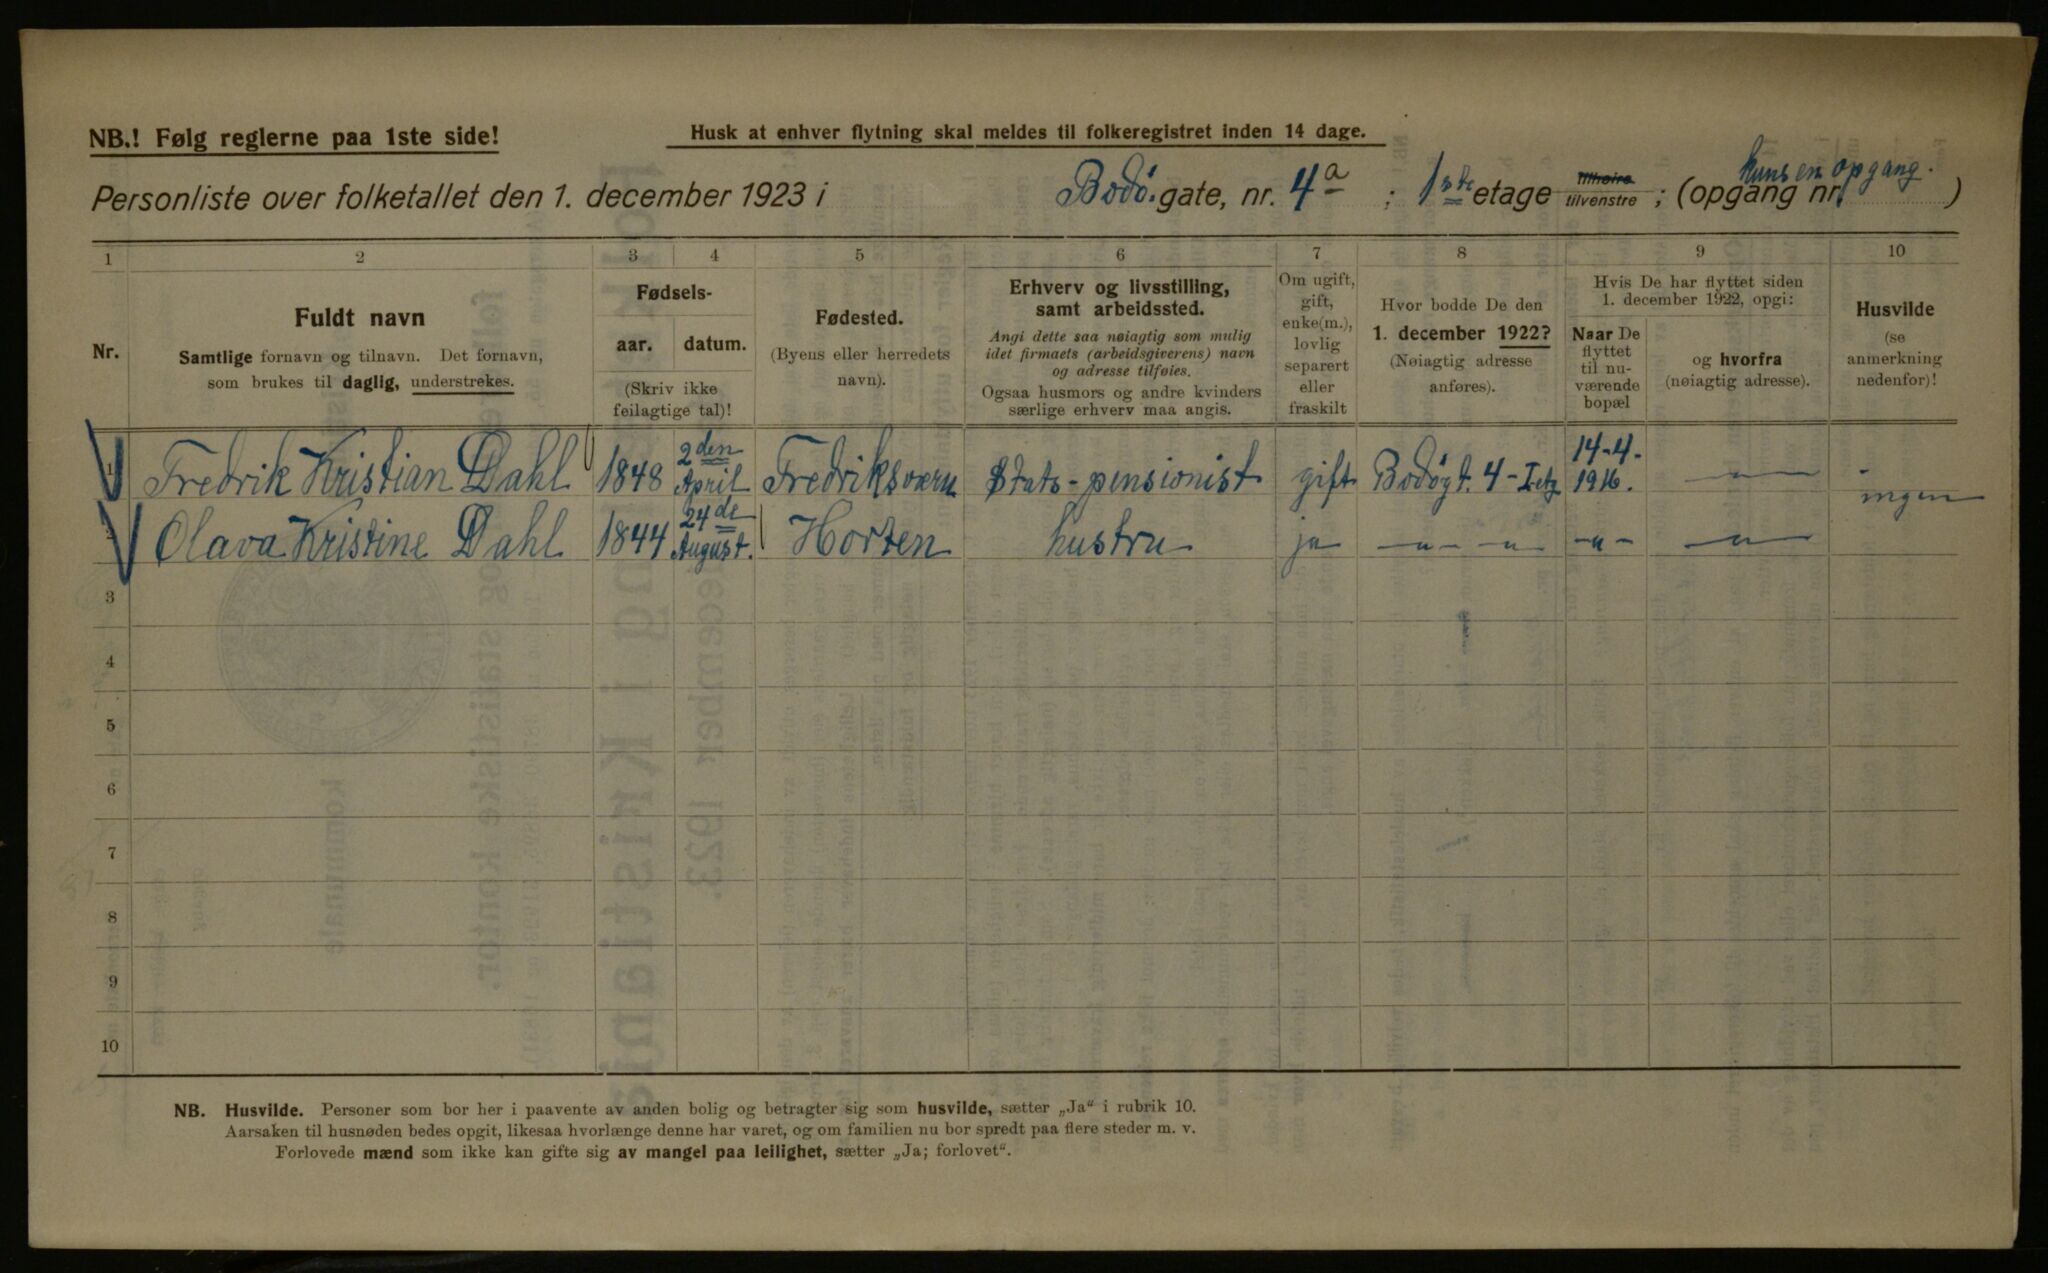 NB.! Følg reglerne paa 1ste side!
Husk at enhver flytning skal meldes til folkeregistret inden 14 dage.
Personliste over folketallet den 1. december 1923 i Bodø. gate, nr. 4a ; 1ste etage tilhøire tilvenstre ; (opgang nr. kuns en opgang. )
1 2 3 4 5 6 7 8 9 10
Nr.
Fuldt navn
Samtlige fornavn og tilnavn. Det fornavn,
som brukes til daglig, understrekes.
Fødsels-
aar. datum.
(Skriv ikke
feilagtige tal)!
Fødested.
(Byens eller herredets
navn).
Erhverv og livsstilling,
samt arbeidssted.
Angi dette saa nøiagtig som mulig
idet firmaets (arbeidsgiverens) navn
og adresse tilføies.
Ogsaa husmors og andre kvinders
særlige erhverv maa angis.
Om ugift,
gift,
enke(m.),
lovlig
separert
eller
fraskilt
Hvor bodde De den
1. december 1922?
(Nøiagtig adresse
anføres).
Hvis De har flyttet siden
1. december 1922, opgi:
Naar De
flyttet
til nu-
værende
bopæl
og hvorfra
(nøiagtig adresse).
Husvilde
(se
anmerkning
nedenfor)!
1 Fredrik Kristian Dahl 1848 2den April Fredriksværn Stats-pensionist gift Bodøgt. 4 - I etg 14-4-1916. -"- - ingen
2 Olava Kristine Dahl 1844 24de August. Horten hustru ja -"- -"- -"- -"-
3
4
5
6
7
8
9
10
NB. Husvilde. Personer som bor her i paavente av anden bolig og betragter sig som husvilde, sætter „Ja" i rubrik 10.
Aarsaken til husnøden bedes opgit, likesaa hvorlænge denne har varet, og om familien nu bor spredt paa flere steder m. v.
Forlovede mænd som ikke kan gifte sig av mangel paa leilighet, sætter „Ja; forlovet".